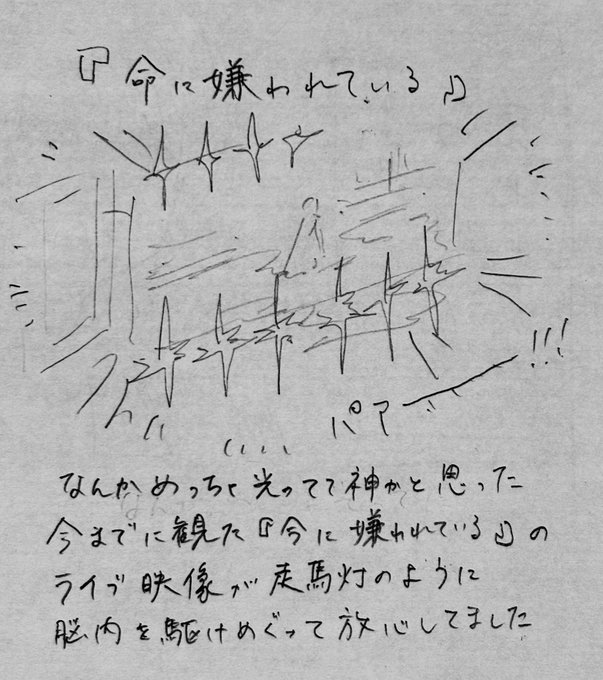 『命に嫌われている』
パアーーー!!!
なんかめっちゃ光ってて神かと思った
今までに観た『今に嫌われている』の
ライブ映像が走馬灯のように
脳内を駆けめぐって放心してました